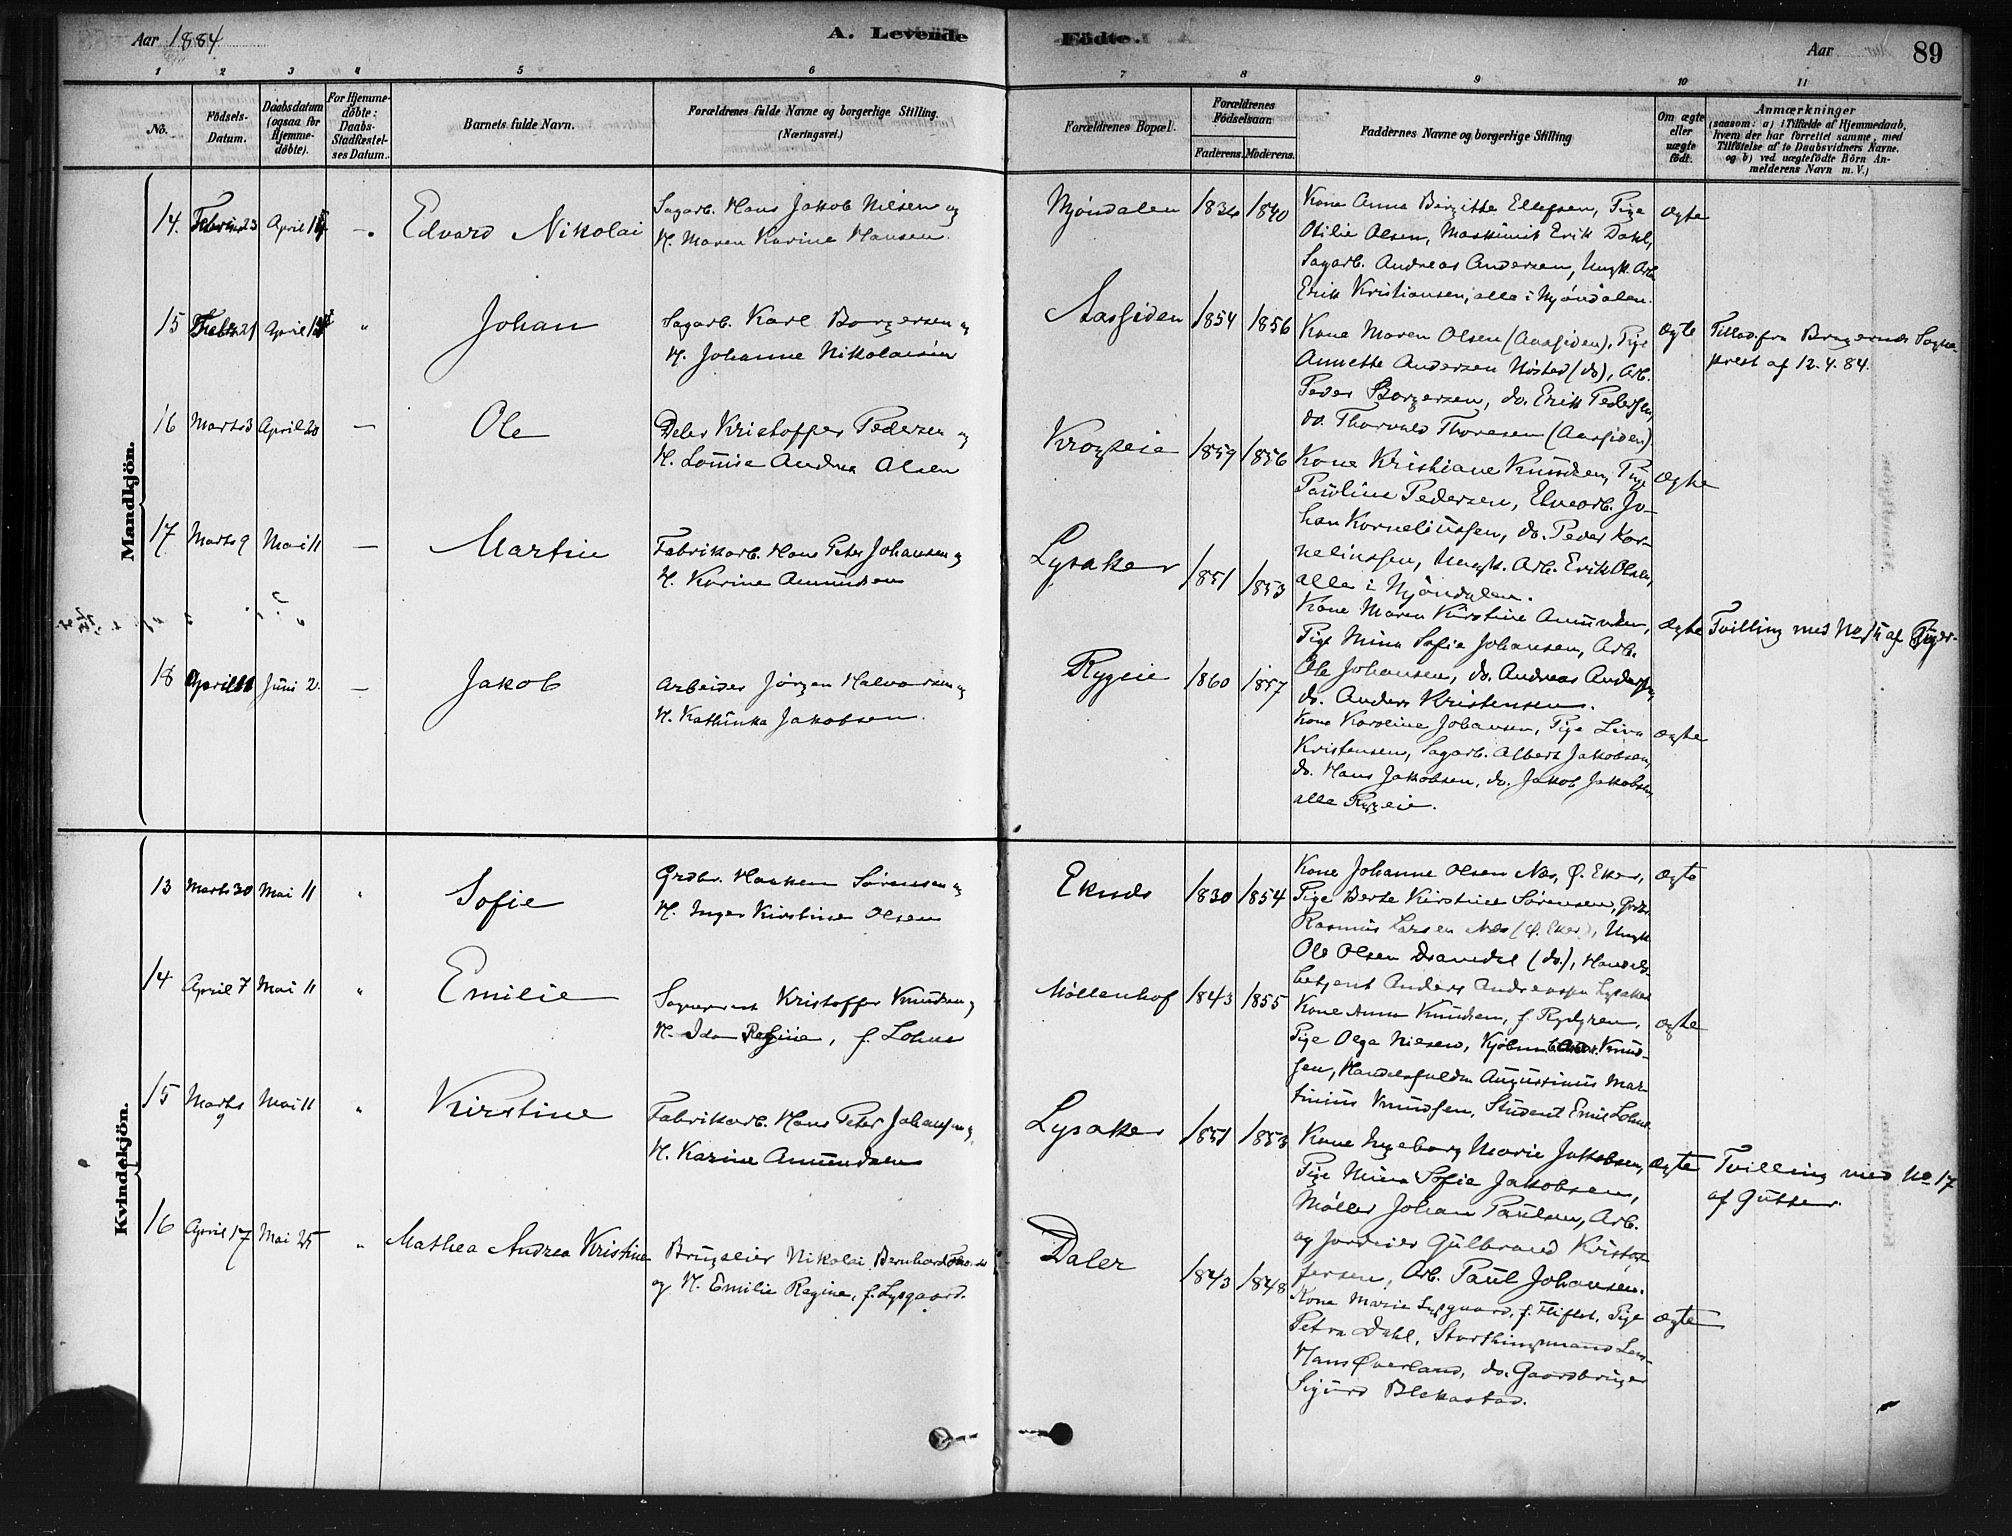 Aar 1884
A. Levende Födte.
Aar
89
1 2 3 4 5 6 7 8 9 10 11
No.
Födsels-Datum.
Daabsdatum (ogsaa for Hjemme-döbte).
For Hjemme-döbte; Daabs-Stadfæstel-ses Datum.
Barnets fulde Navn.
Forældrenes fulde Navne og borgerlige Stilling. (Næringsvei.)
Forældrenes Bopæl.
Forældrenes Födselsaar.
Faderens. Moderens.
Faddernes Navne og borgerlige Stilling
Om ægte eller uægte födt.
Anmærkninger
(saasom: a) i Tilfælde af Hjemmedaab,
hvem der har forrettet samme, med
Tilföielse af to Daabsvidners Navne.
og b) ved uægtefödte Börn An-
melderens Navn m. V.)
Mandkjön.
14. Februar 23 April — Edvard Nikolai
Sagarb. Hans Jakob Nilsen og
H. Maren Karine Hansen.
Mjøndalen 1834 1840
Kone Anna Birgitte Ellefsen, Pige
Otilie Olsen, Maskinist Erik Dahl,
Sagarb. Andreas Andersen, Ungk. Arb.
Erik Kristiansen, alle i Mjøndalen.
ægte
15 Febr. 21 April " Johan
Sagarb. Karl Borgersen og
H. Johanne Nikolaisen
Aassiden 1854 1856
Kone Maren Olsen (Aassiden), Pige
Annette Andersen Høsted (do), Arb.
Peder Borgersen, do. Erik Pedersen,
do. Thorvald Thoresen (Aassiden)
ægte
Tillad. fra Bragernes Sogne-
prest af 12.4.84.
16 Marts 3 April 20 — Ole
Deler Kristoffer Pedersen og
H. Lovise Andrea Olsen
Krogseie 1859 1856
Kone Kristiane Knudsen, Pige
Pauline Pedersen, Elvearb. Jo-
han Korneliussen, do. Peder Kor-
neliussen, Ungk. Arb. Erik Olsen,
alle i Mjøndalen.
ægte
17 Marts 9 Mai 11 — Martin
Fabrikarb. Hans Peter Johansen og
H. Karine Amundsen
Lysaker 1851 1853
Kone Maren Kirstine Amundsen,
Pige Mina Sofie Johansen, Arb.
Ole Johansen, do. Andreas Andersen,
do. Anders Kristensen.
ægte
Tvilling med No 15 af Piger.
18 April Juni 2. — Jakob
Arbeider Jørgen Halvorsen og
H. Kathinka Jakobsen.
Rygeie 1860 1857
Kone Karoline Johansen, Pige Lina
Kristensen, Sagarb. Albert Jakobsen,
do. Hans Jakobsen, do. Jakob Jakobsen,
alle Rygeie.
ægte
Kvindekjön.
13 Marts 30 Mai 11 " Sofie
Grdbr. Haaken Sørensen og
H. Inger Kirstine Olsen
Eknes 1830 1854
Kone Johanne Olsen Næs, Ø. Eker,
Pige Berte Kirstine Sørensen, Grdbr.
Rasmus Larsen Næs (Ø. Eker), Ungk.
Ole Olsen (do.), Handels-
betjent Anders Andreassen Lysaker
ægte
14 April 7 Mai 11 " Emilie
Sogneprest Kristoffer Knudsen og
H. Ida Regine, f. Lohne
Møllenhof 1843 1855
Kone Anna Knudsen, f. Rydgren,
Pige Olga Nielsen, Kjøbm. Knud-
sen, Handelsfuldm. Augustinius Mar-
tinius Knudsen, Student Emil Lohne
ægte
15 Marts 9 Mai 11 " Kirstine
Fabrikarb. Hans Peter Johansen og
H. Karine Amundsen
Lysaker 1851 1853
Kone Ingeborg Marie Jakobsen,
Pige Mina Sofie Jakobsen,
Møller Johan Paulsen, Arb.
og Jordeier Gulbrand Kristof-
fersen, Arb. Paul Johansen.
ægte
Tvilling med No 17
af Gutter.
16 April 17 Mai 25 " Mathea Andrea Kristine
Brugseier Nikolai Bernhard
og H. Emilie Regine, f. Lysgaard.
Daler 1843 1848
Kone Marie Lysgaard, f. Fliflet, Pige
Petra Dahl, Storthingsmand Lens-
Hans Øverland, do. Gaardbruger
Sigurd Blekastad.
ægte